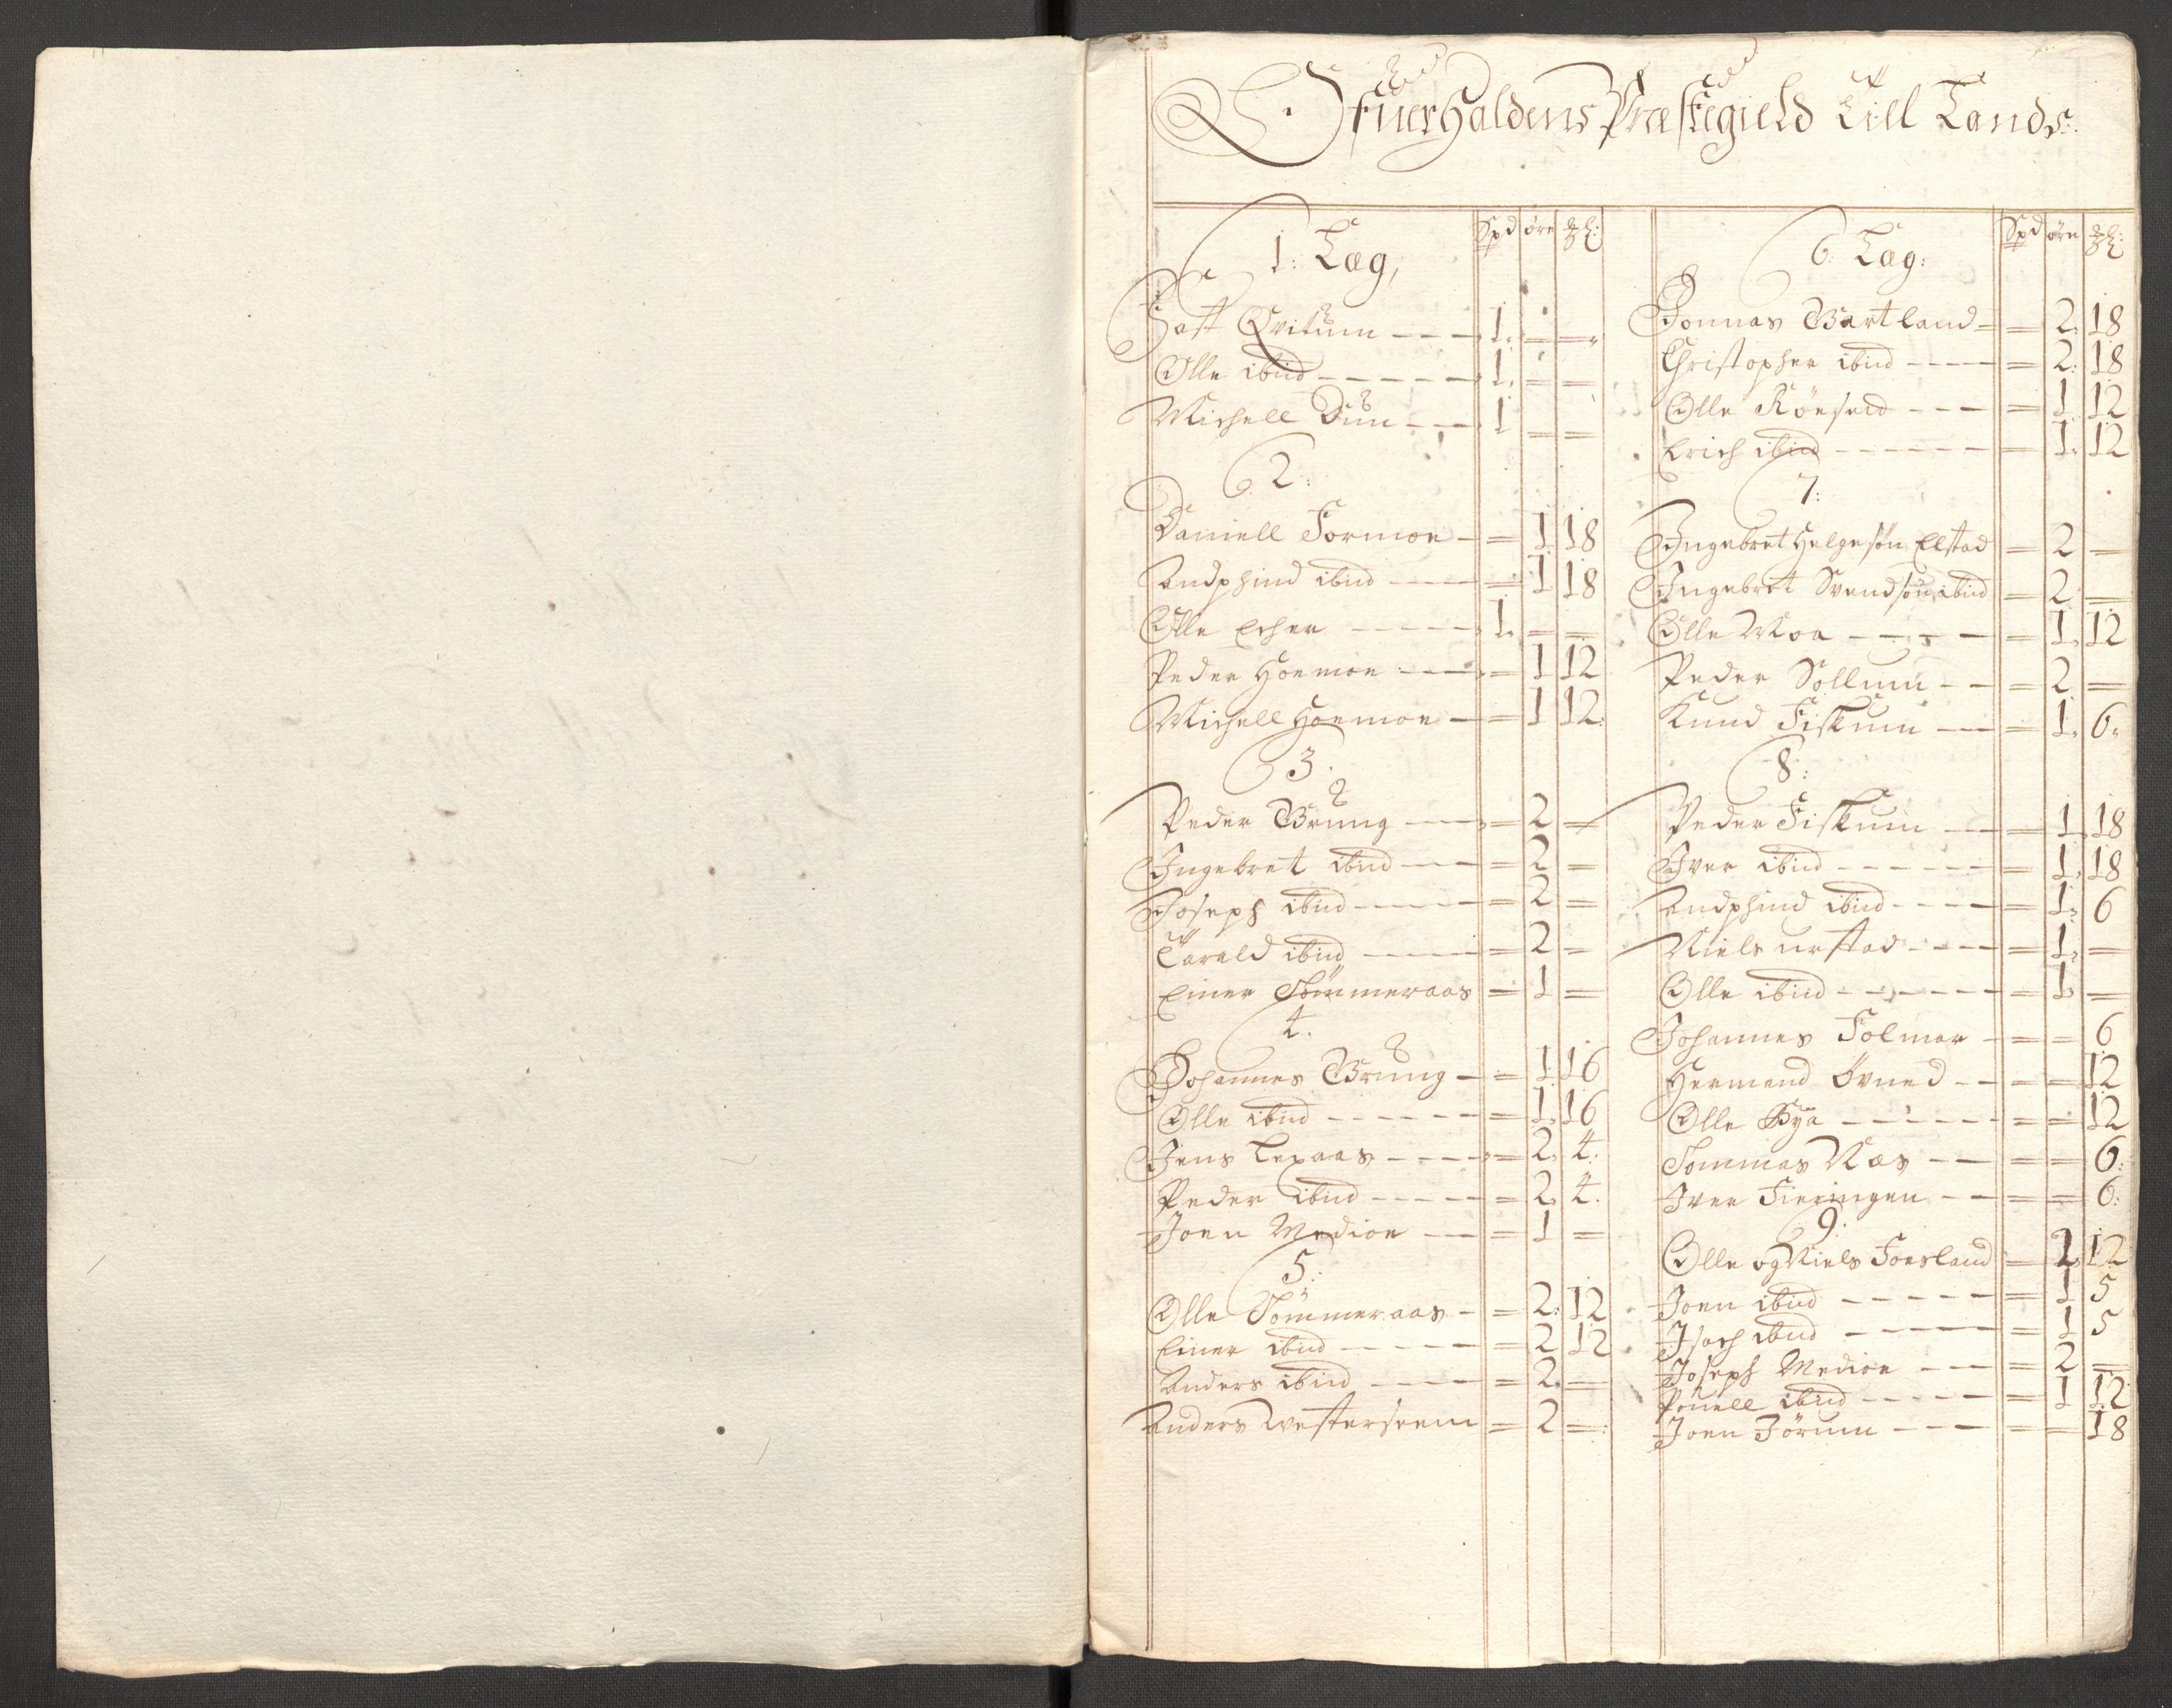 Ofuerhaldens Præstegield Till Lands:
1: Læg,
Spd øre mk:
Hast Qvitum --- 1. = =
Olle ibid ----- 1. = =
Michell Dun --- 1 = =
2:
Daniell Formoe - = 1 18
Andphind ibid --- = 1 18
Olle Echer ---- 1. = =
Peder Homoe --- = 1 12
Michell Homoe -- = 1 12.
3.
Peder Brung --- = 2 =
Ingebret ibid --- = 2 =
Joseph ibid ---- = 2 =
Tarald ibid ---- = 2 =
Einer Tømmeraas = 1 =
4.
Johannes Brung -- = 1 16
Olle ibid ----- = 1. 16
Jens Lexaas ---- = 2. 4.
Peder ibid ----- = 2. 4.
Joen Medioe --- = 1 =
5:
Olle Tømmeraas - = 2. 12
Einer ibid ----- = 2 12
Anders ibid ---- = 2. =
Anders Westerseem = 2 =
6: Læg:
Spd øre
Jonnas Bartland - = 2. 18
Christopher ibid ---- = 2. 18
Olle Røeseid --- = 1. 12
Erich ibid ------ = 1. 12
7:
Ingebret Helgesøn Elstad = 2 =
Ingebret Svendsøn ibid = 2 =
Olle Moa ---- = 1. 12
Peder Sollum -- = 2. =
Knud Fiskum -- = 1. 6.
8:
Peder Fiskum -- = 1. 18
Iver ibid ------ = 1. 18
Andphind ibid ---- = 1. 6
Niels urstad ---- = 1. =
Olle ibid ------ = 1. =
Johannes Folmer - = = 6
Hermand Øvned -- = = 12
Olle Bya ------ = = 12
Tommas Næs -- = = 6.
Iver Fieringen -- = = 6.
9:
Olle og Niels Foesland = 2. 12
Joen ibid ----- = 1 5
Isach ibid ----- = 1 5
Joseph Medioe --- = 2 =
Pouell ibid ----- = 1 12
Joen Jørum --- = = 18